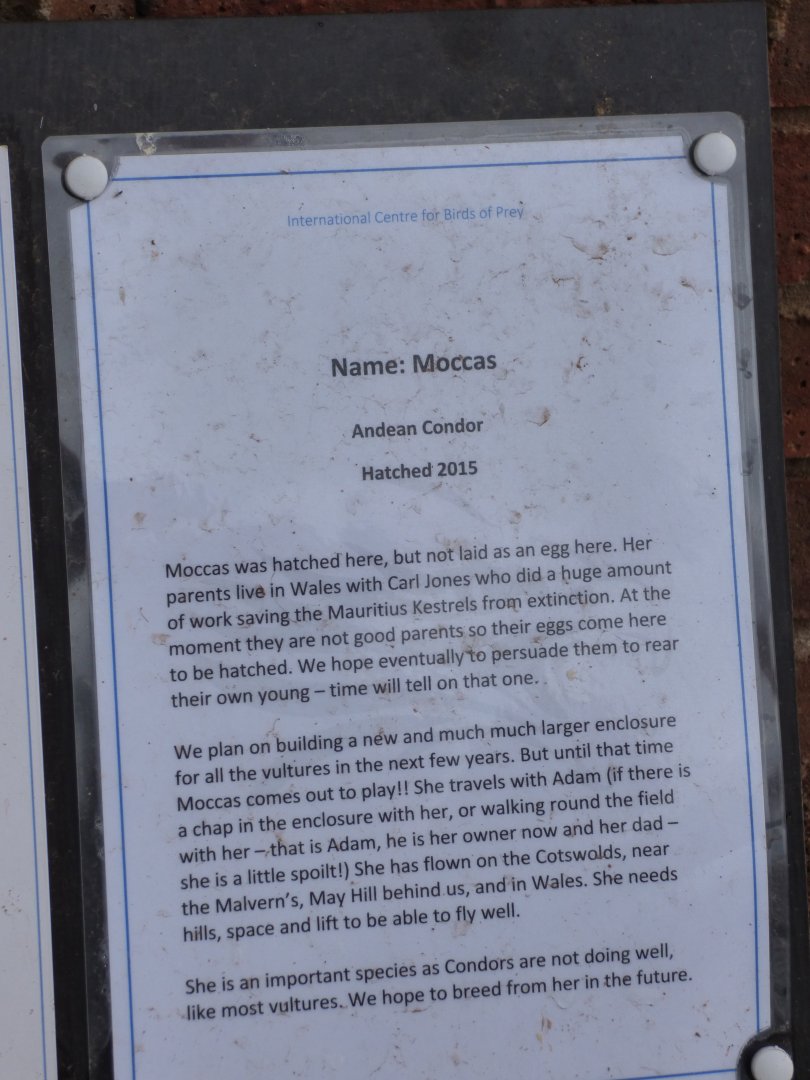 International Centre for Birds of Prey
Name: Moccas
Andean Condor
Hatched 2015
Moccas was hatched here, but not laid as an egg here. Her
parents live in Wales with Carl Jones who did a huge amount
of work saving the Mauritius Kestrels from extinction. At the
moment they are not good parents so their eggs come here
to be hatched. We hope eventually to persuade them to rear
their own young – time will tell on that one.
We plan on building a new and much much larger enclosure
for all the vultures in the next few years. But until that time
Moccas comes out to play!! She travels with Adam (if there is
a chap in the enclosure with her, or walking round the field
with her – that is Adam, he is her owner now and her dad –
she is a little spoilt!) She has flown on the Cotswolds, near
the Malvern's, May Hill behind us, and in Wales. She needs
hills, space and lift to be able to fly well.
She is an important species as Condors are not doing well,
like most vultures. We hope to breed from her in the future.